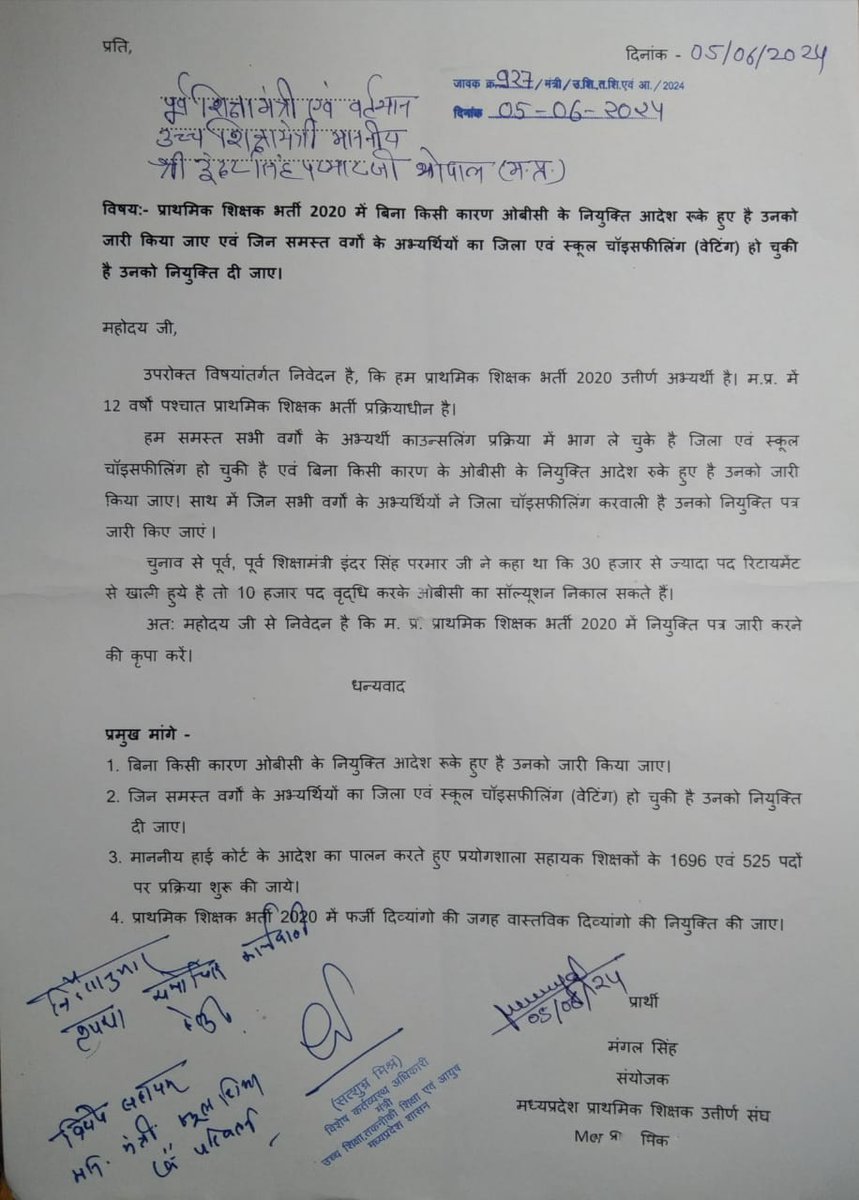 प्रति,
दिनांक - 05/06/2024
जावक क्र. 927/मंत्री/उ.शि.त.शि.एवं आ./2024
दिनांक 05-06-2024
पूर्व शिक्षामंत्री एवं वर्तमान
उच्च शिक्षामंत्री माननीय
श्री इंदरसिंह परमार जी भोपाल (म.प्र.)
विषय:- प्राथमिक शिक्षक भर्ती 2020 में बिना किसी कारण ओबीसी के नियुक्ति आदेश रूके हुए है उनको
जारी किया जाए एवं जिन समस्त वर्गों के अभ्यर्थियों का जिला एवं स्कूल चॉइसफीलिंग (वेटिंग) हो चुकी
है उनको नियुक्ति दी जाए।
महोदय जी,
उपरोक्त विषयांतर्गत निवेदन है, कि हम प्राथमिक शिक्षक भर्ती 2020 उत्तीर्ण अभ्यर्थी है। म.प्र. में
12 वर्षों पश्चात प्राथमिक शिक्षक भर्ती प्रक्रियाधीन है।
हम समस्त सभी वर्गों के अभ्यर्थी काउन्सलिंग प्रक्रिया में भाग ले चुके है जिला एवं स्कूल
चॉइसफीलिंग हो चुकी है एवं बिना किसी कारण के ओबीसी के नियुक्ति आदेश रुके हुए है उनको जारी
किया जाए। साथ में जिन सभी वर्गों के अभ्यर्थियों ने जिला चॉइसफीलिंग करवाली है उनको नियुक्ति पत्र
जारी किए जाएं ।
चुनाव से पूर्व, पूर्व शिक्षामंत्री इंदर सिंह परमार जी ने कहा था कि 30 हजार से ज्यादा पद रिटायमेंट
से खाली हुये है तो 10 हजार पद वृद्धि करके ओबीसी का सॉल्यूशन निकाल सकते हैं।
अत: महोदय जी से निवेदन है कि म. प्र. प्राथमिक शिक्षक भर्ती 2020 में नियुक्ति पत्र जारी करने
की कृपा करें।
धन्यवाद
प्रमुख मांगे -
1. बिना किसी कारण ओबीसी के नियुक्ति आदेश रूके हुए है उनको जारी किया जाए।
2. जिन समस्त वर्गों के अभ्यर्थियों का जिला एवं स्कूल चॉइसफीलिंग (वेटिंग) हो चुकी है उनको नियुक्ति
दी जाए।
3. माननीय हाई कोर्ट के आदेश का पालन करते हुए प्रयोगशाला सहायक शिक्षकों के 1696 एवं 525 पदों
पर प्रक्रिया शुरू की जाये।
4. प्राथमिक शिक्षक भर्ती 2020 में फर्जी दिव्यांगो की जगह वास्तविक दिव्यांगो की नियुक्ति की जाए।
कृपया
मंत्री स्कूल शिक्षा
05/06/24
प्रार्थी
मंगल सिंह
संयोजक
मध्यप्रदेश प्राथमिक शिक्षक उत्तीर्ण संघ
(सत्शुन्न मिश्र)
विशेष कर्तव्यस्थ अधिकारी
मंत्री
उच्च शिक्षा,तकनीकी शिक्षा एवं आयुष
मध्यप्रदेश शासन